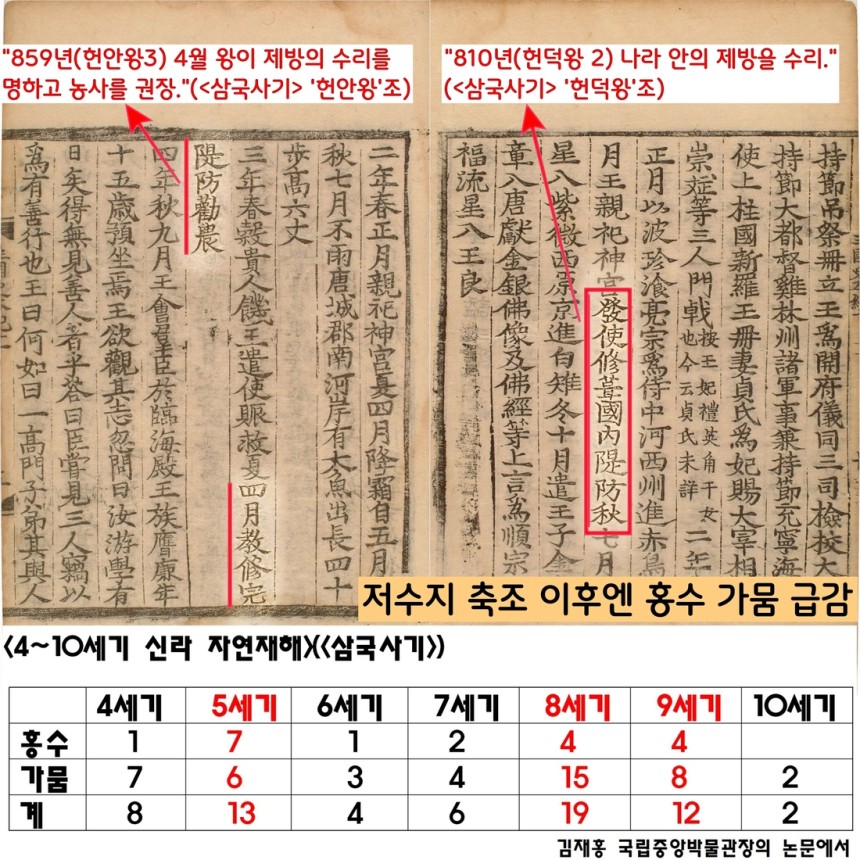 "859년(헌안왕3) 4월 왕이 제방의 수리를
명하고 농사를 권장."(<삼국사기> '헌안왕'조)
"810년(헌덕왕 2) 나라 안의 제방을 수리."
(<삼국사기> '헌덕왕'조)
持節吊祭冊立王爲開府儀同三司檢校大
持節大都督雞林州諸軍事兼持節充寧海
使上柱國新羅王冊妻貞氏爲妃賜大宰相
崇斌等三人門戟 按王妃禮英角干女也今云貞氏未詳 二年
正月以波珍飡亮宗爲侍中河西州進赤烏
月王親祀神宮發使修葺國內隄防秋七月
星入紫微西原京進白雉冬十月遣王子金
章入唐獻金銀佛像及佛經等上言爲順宗
福流星入王良
二年春正月親祀神宮夏四月降霜自五月
秋七月不雨唐城郡南河岸有大魚出長四十
步高六丈
三年春穀貴人饑王遣使賑救夏四月教修完
隄防勸農
四年秋九月王會羣臣於臨海殿王族膺廉年
十五歲預坐焉王欲觀其志忽問曰汝游學有
日矣得無見善人者乎答曰臣嘗見三人竊以
爲有善行也王曰何如曰一高門子弟其與人
저수지 축조 이후엔 홍수 가뭄 급감
<4~10세기 신라 자연재해>(<삼국사기>)
4세기 5세기 6세기 7세기 8세기 9세기 10세기
홍수 1 7 1 2 4 4
가뭄 7 6 3 4 15 8 2
계 8 13 4 6 19 12 2
김재홍 국립중앙박물관장의 논문에서